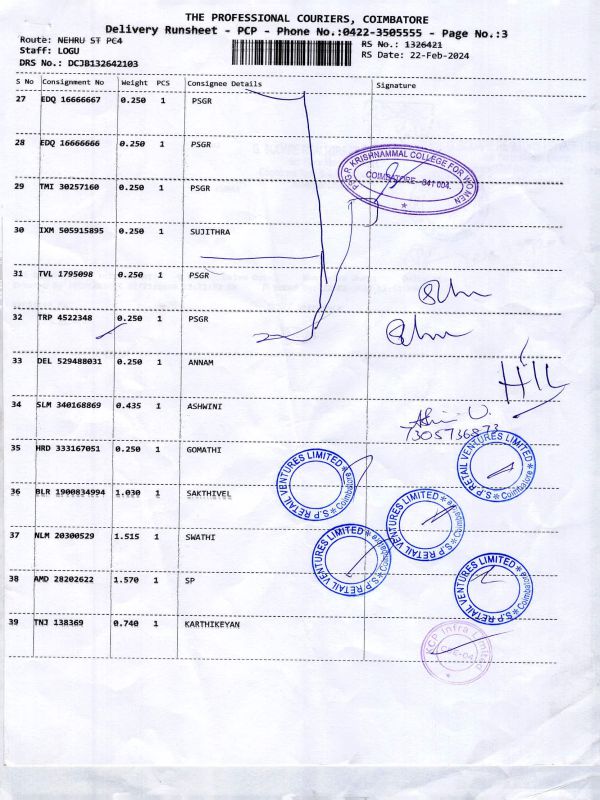 THE PROFESSIONAL COURIERS, COIMBATORE
Delivery Runsheet - PCP - Phone No.:0422-3505555 - Page No.:3
Route: NEHRU ST PC4
Staff: LOGU
RS No.: 1326421
RS Date: 22-Feb-2024
DRS No.: DCJB132642103
S No Consignment No Weight PCS Consignee Details Signature
27 EDQ 16666667 0.250 1 PSGR
28 EDQ 16666666 0.250 1 PSGR
PSGR KRISHNAMMAL COLLEGE FOR WOMEN
COIMBATORE - 641 004.
29 TMI 30257160 0.250 1 PSGR
30 IXM 505915895 0.250 1 SUJITHRA
31 TVL 1795098 0.250 1 PSGR
32 TRP 4522348 0.250 1 PSGR
33 DEL 529488031 0.250 1 ANNAM
34 SLM 340168869 0.435 1 ASHWINI
7305736873
35 HRD 333167051 0.250 1 GOMATHI
S.P RETAIL VENTURES LIMITED * Coimbatore *
S.P RETAIL VENTURES LIMITED * Coimbatore *
36 BLR 1900834994 1.030 1 SAKTHIVEL
S.P RETAIL VENTURES LIMITED * Coimbatore *
37 NLM 20300529 1.515 1 SWATHI
S.P RETAIL VENTURES LIMITED * Coimbatore *
38 AMD 28202622 1.570 1 SP
S.P RETAIL VENTURES LIMITED * Coimbatore *
39 TNJ 138369 0.740 1 KARTHIKEYAN
KCP Infra Limited